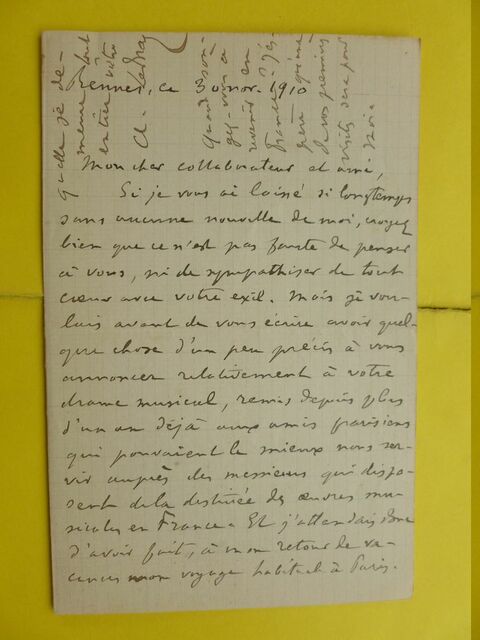 Rennes, ce 30 nov. 1910
Mon cher collaborateur et ami,
Si je vous ai laissé si longtemps
sans aucune nouvelle de moi, croyez
bien que ce n'est pas faute de penser
à vous, ni de sympathiser de tout
cœur avec votre exil. Mais je vou-
lais avant de vous écrire avoir quel-
que chose d'un peu précis à vous
annoncer relativement à votre
drame musical, remis depuis plus
d'un an déjà aux amis parisiens
qui pouvaient le mieux nous ser-
vir auprès des messieurs qui dispo-
sent de la destinée des œuvres mu-
sicales en France. Et j'attendais donc
d'avoir fait, à mon retour de va-
cances mon voyage habituel à Paris.
quelle je de-
meure tout
entier vôtre
A.
Quand son-
gez-vous à
revenir en
France? J'es-
père qu'une
de vos premières
visites sera pour
moi.